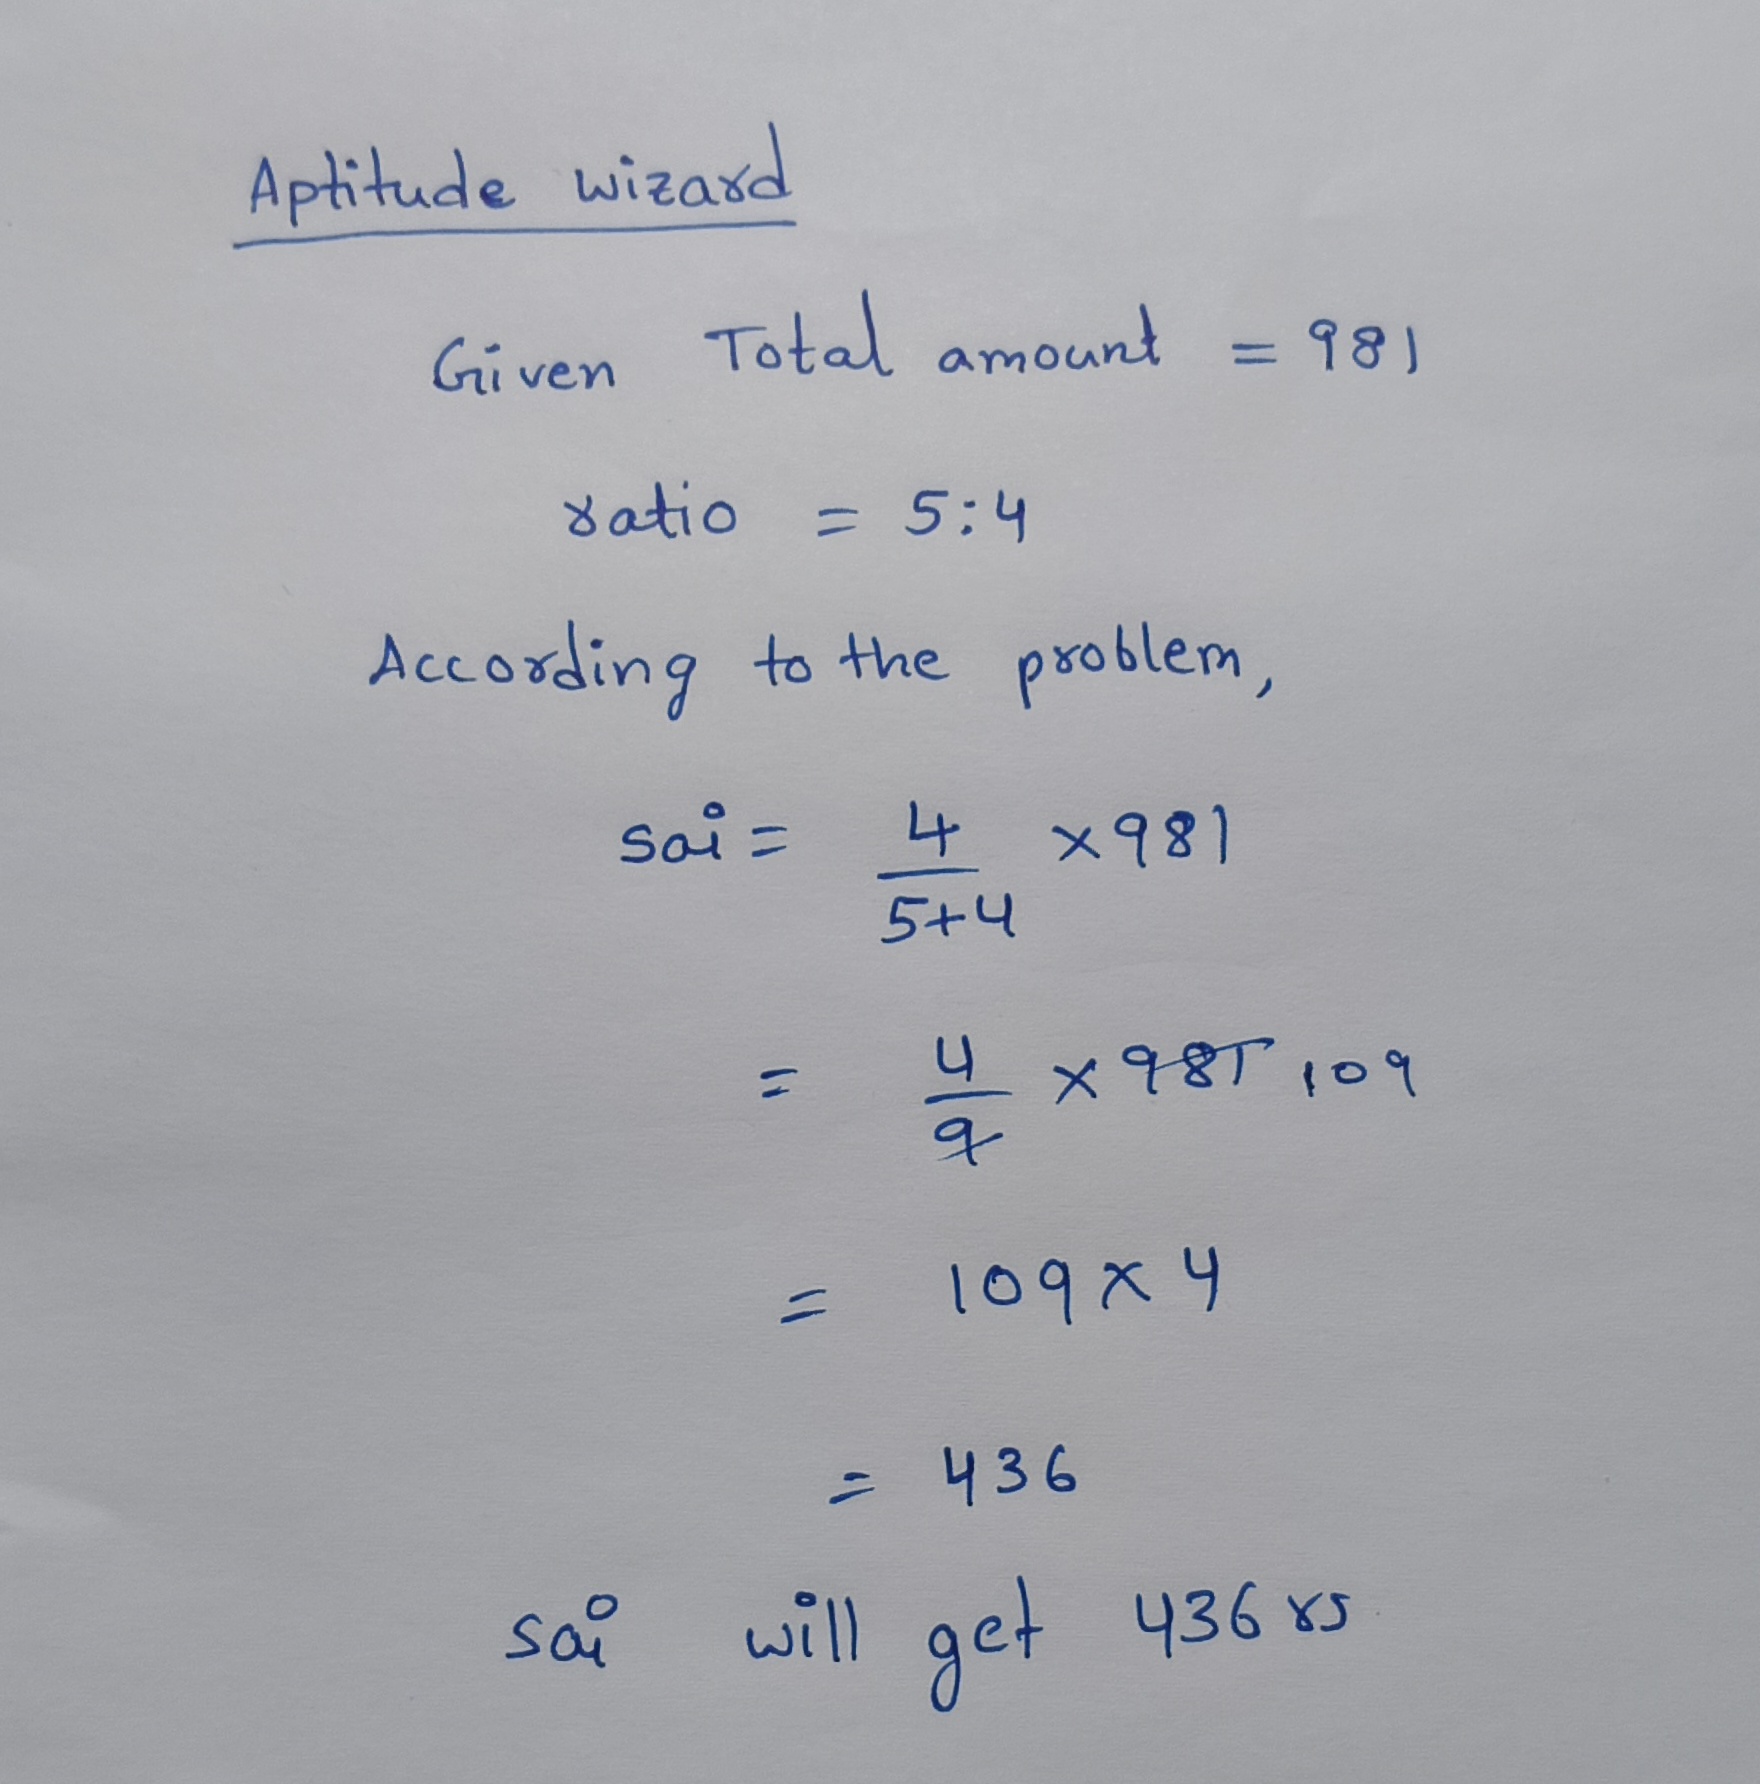 Aptitude wizard
Given Total amount = 981
ratio = 5:4
According to the problem,
sai = 4/5+4 x981
= 4/9 x 981 109
= 109 x 4
= 436
sai will get 436 rs